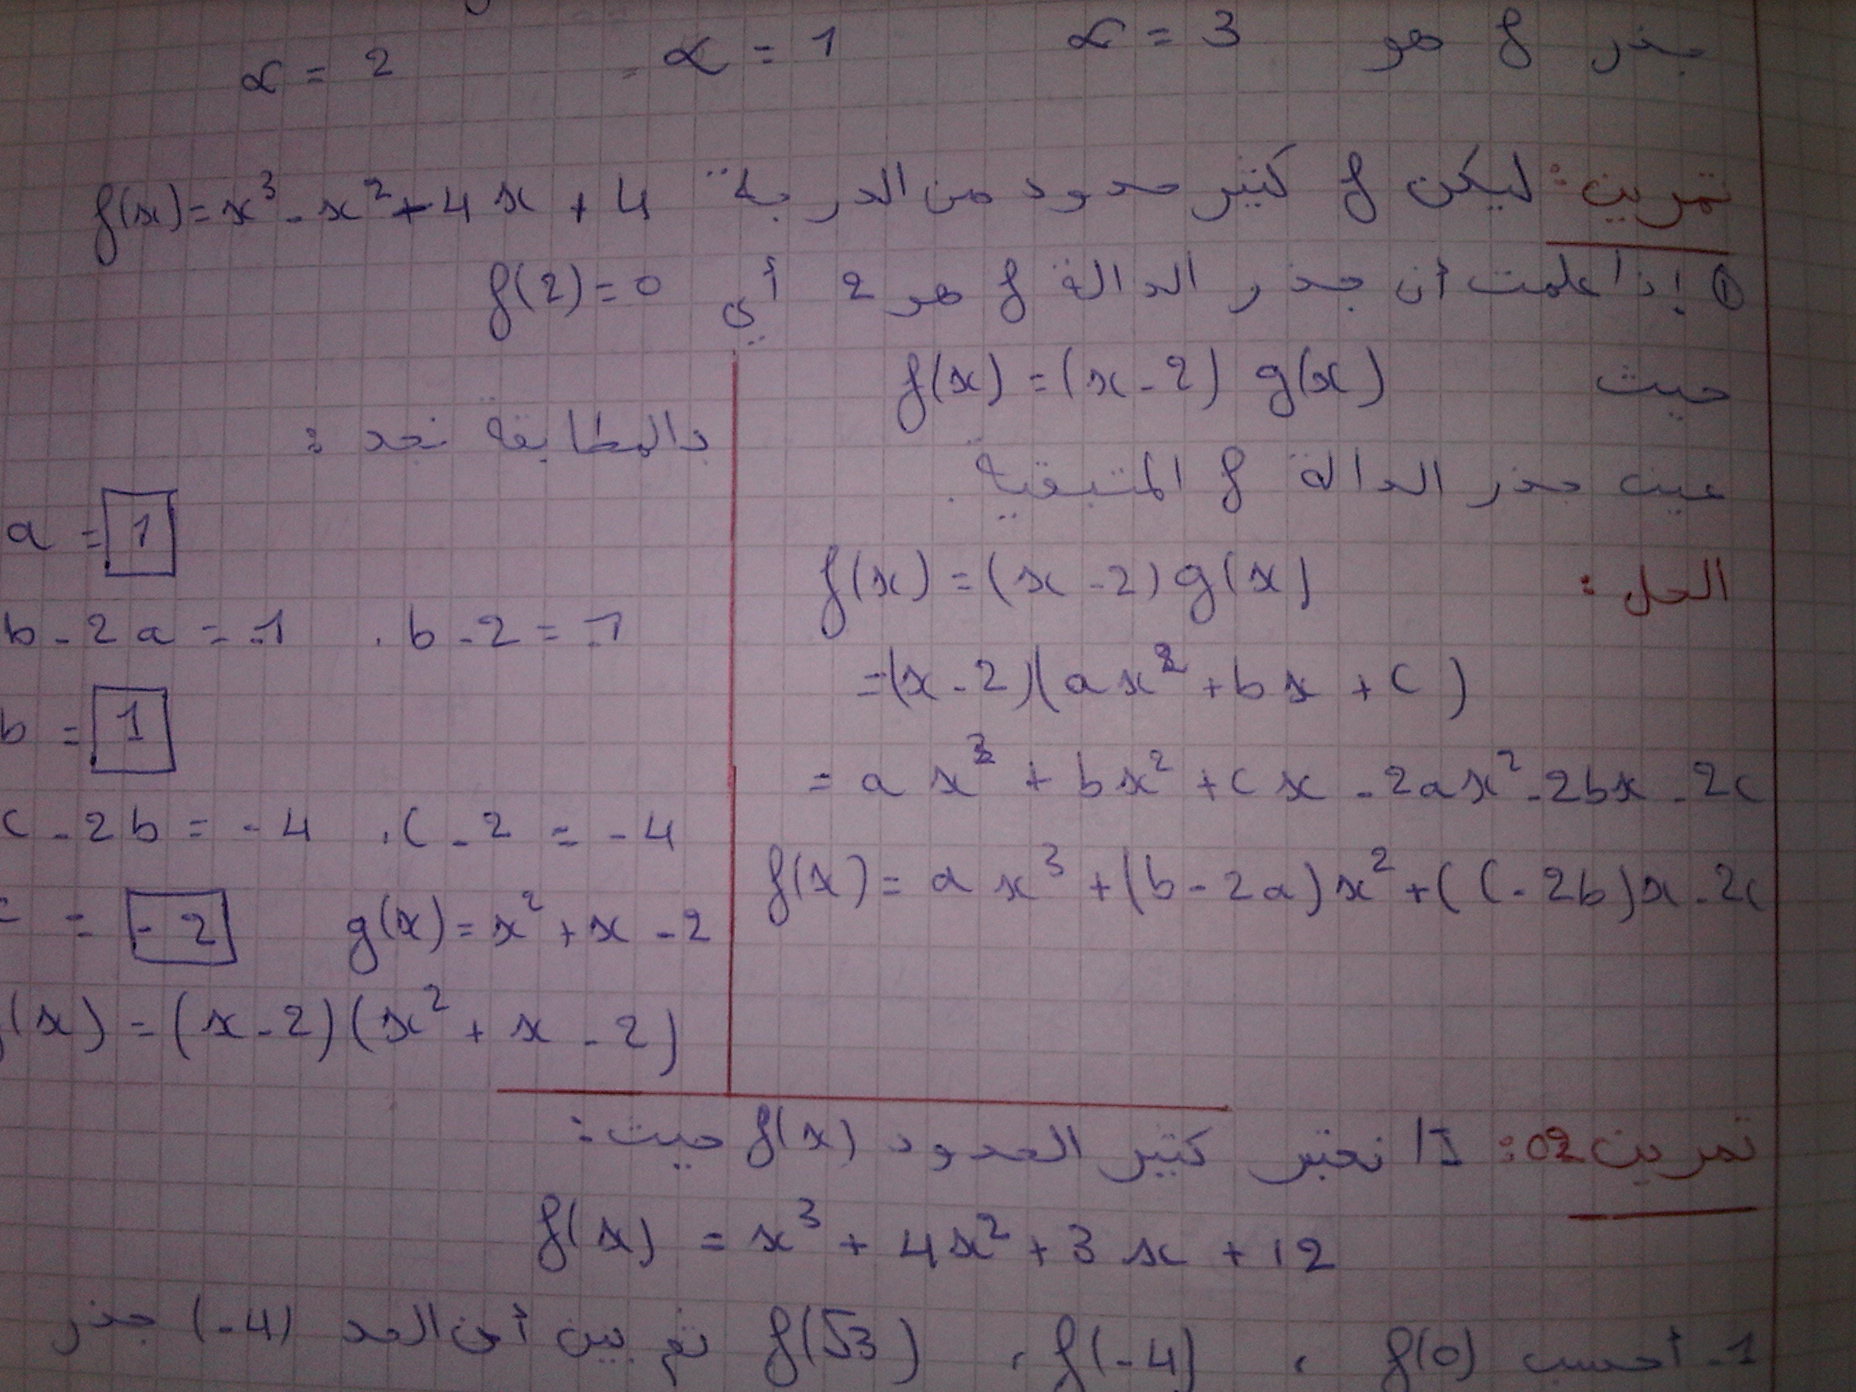 جذر f هو α = 3   α = 1   α = 2
تمرين: ليكن f كثير حدود من الدرجة f(x) = x³ - x² + 4x + 4
① إذا علمت أن جذر الدالة f هو 2 أي f(2) = 0
حيث f(x) = (x - 2) g(x)
عين جذر الدالة f المتبقية.
الحل: f(x) = (x - 2) g(x)
= (x - 2)(ax² + bx + c)
= ax³ + bx² + cx - 2ax² - 2bx - 2c
f(x) = ax³ + (b - 2a)x² + (c - 2b)x - 2c
بالمطابقة نجد:
a = 1
b - 2a = -1 . b - 2 = -1
b = 1
c - 2b = -4 . c - 2 = -4
= -2   g(x) = x² + x - 2
(x) = (x - 2)(x² + x - 2)
تمرين 02: I/ نعتبر كثير الحدود f(x) حيث:
f(x) = x³ + 4x² + 3x + 12
1- أحسب f(0) ، f(-4) ، f(√3) ثم بين أن العدد (-4) جذر